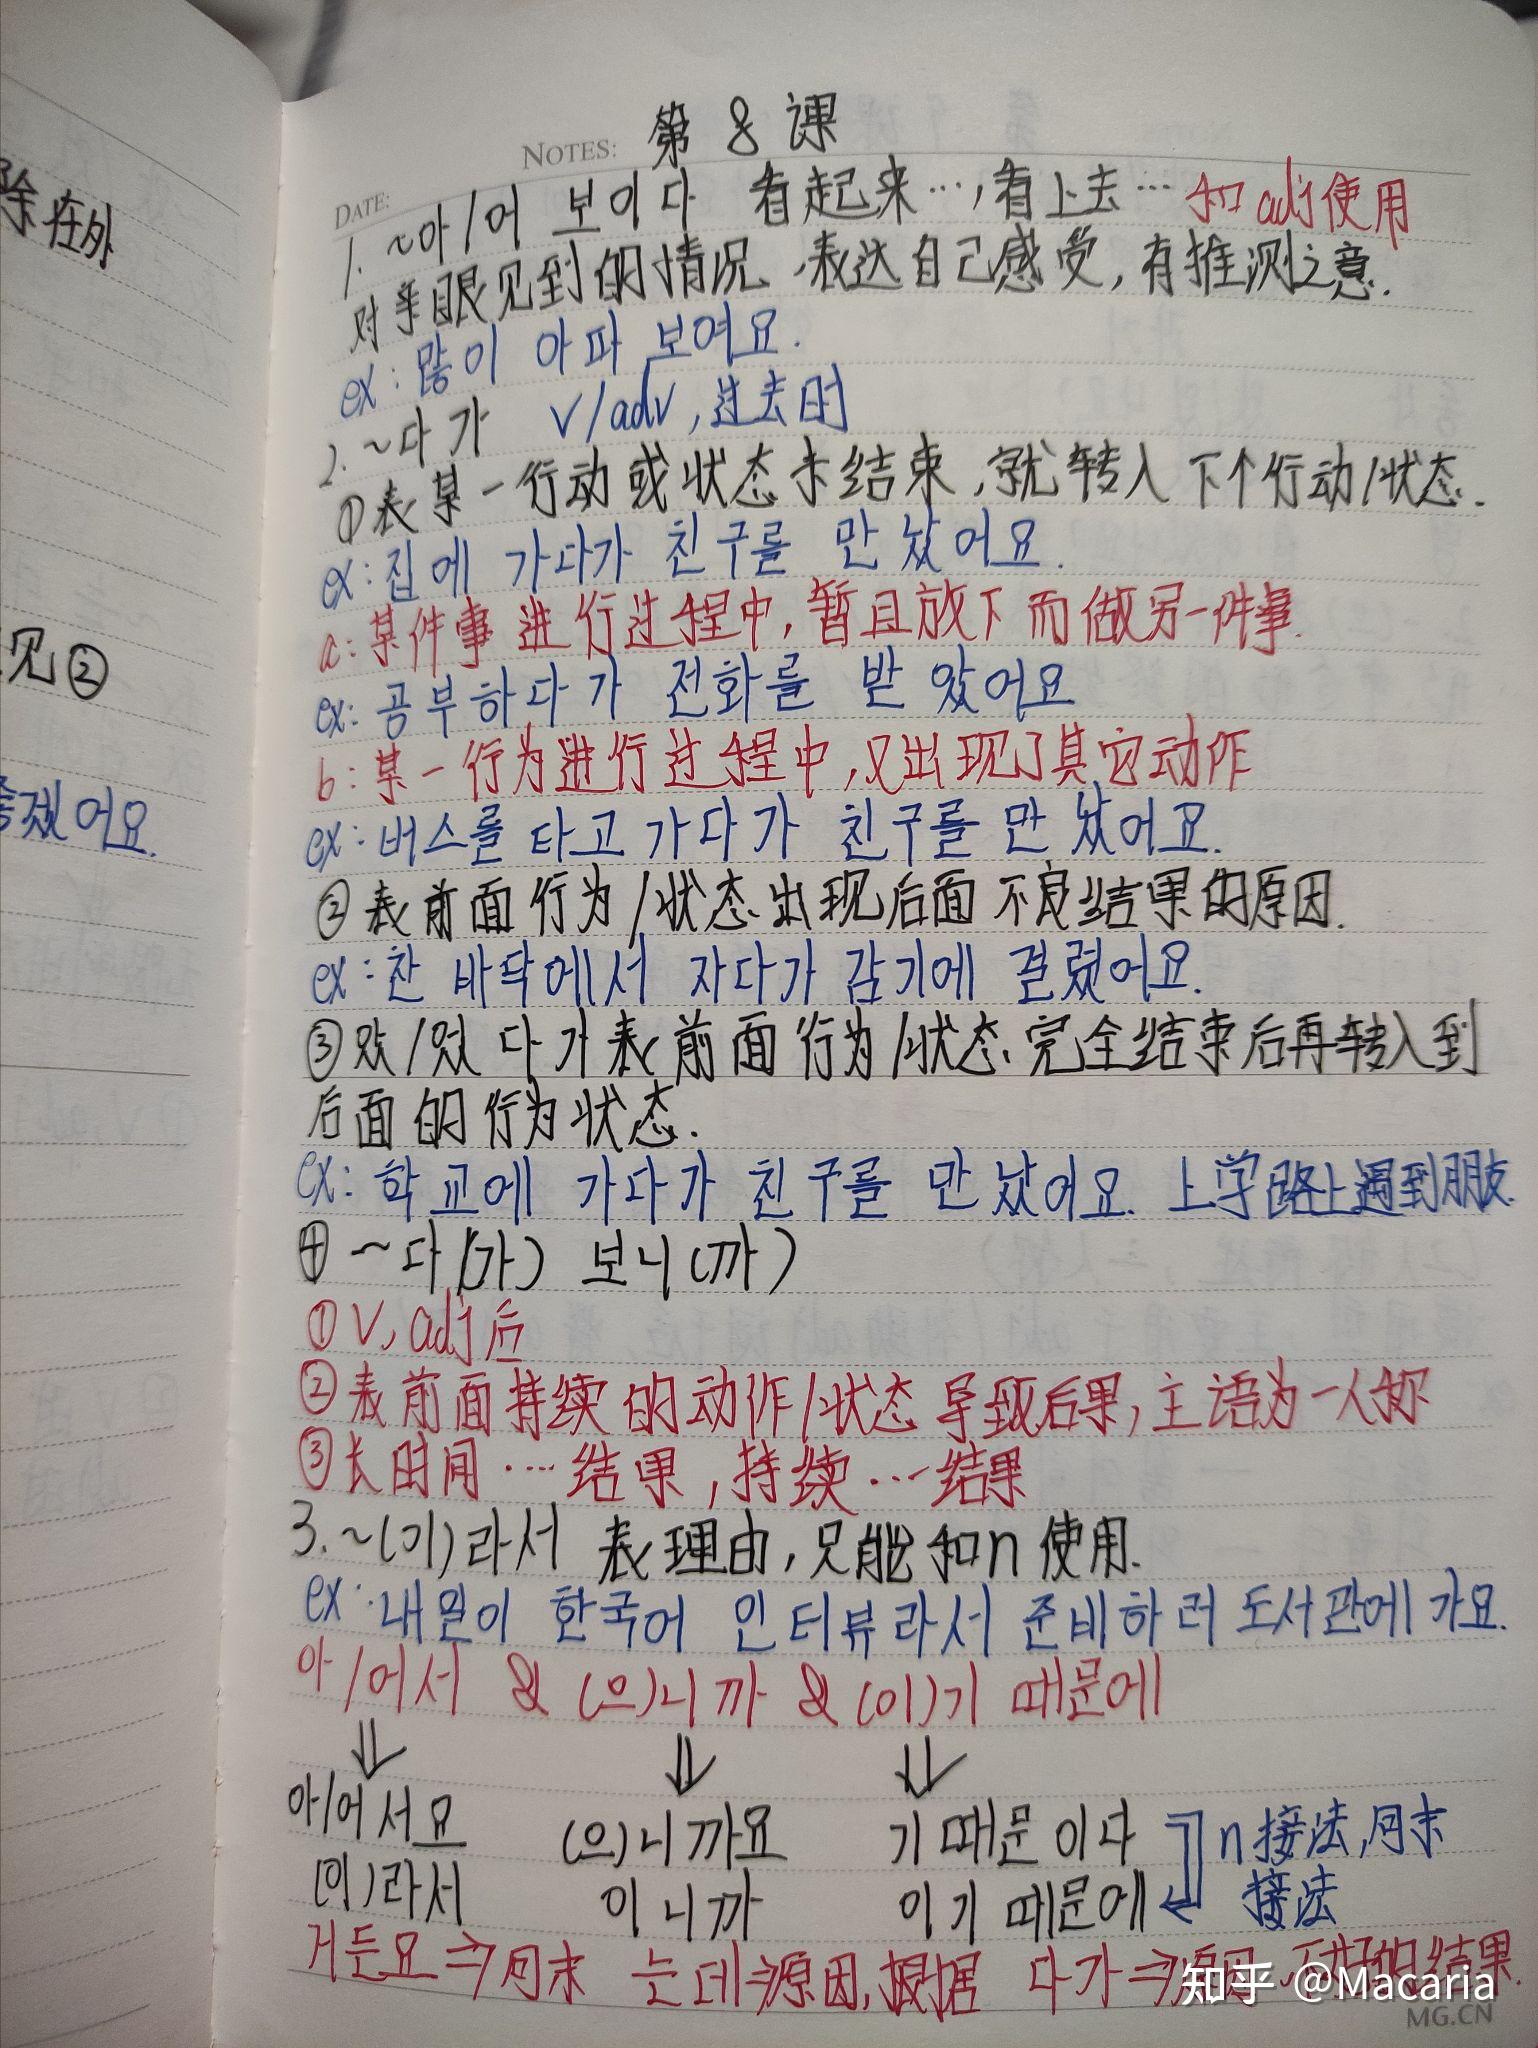 除在外
见②
겠어요.
NOTES: 第8课
DATE:
1. ~아/어 보이다 看起来…,看上去… 和adj使用
对亲眼见到的情况,表达自己感受,有推测之意.
ex: 많이 아파 보여요.
2. ~다가 V/adv,过去时
①表某一行动或状态未结束,就转入下个行动/状态.
ex: 집에 가다가 친구를 만났어요.
a: 某件事进行过程中,暂且放下而做另一件事.
ex: 공부하다가 전화를 받았어요
b: 某一行为进行过程中,又出现了其它动作
ex: 버스를 타고 가다가 친구를 만났어요.
②表前面行为/状态出现后面不良结果的原因.
ex: 찬 바닥에서 자다가 감기에 걸렸어요.
③았/었다가表前面行为/状态完全结束后再转入到
后面的行为状态.
ex: 학교에 가다가 친구를 만났어요. 上学路上遇到朋友.
④~다(가) 보니(까)
①V,adj后
②表前面持续的动作/状态导致后果,主语为一人称
③长时间…结果,持续…结果
3. ~(기)라서 表理由,只能和n使用.
ex: 내일이 한국어 인터뷰라서 준비하러 도서관에 가요.
아/어서 & (으)니까 & (이)기 때문에
⇓ ⇓ ⇓
아/어서요 (으)니까요 기 때문이다 n接法,句末
(이)라서 이니까 이기 때문에 接法
거든요⇒句末 는데⇒原因,根据 다가⇒ 不好的结果.
知乎 @Macaria
MG.CN